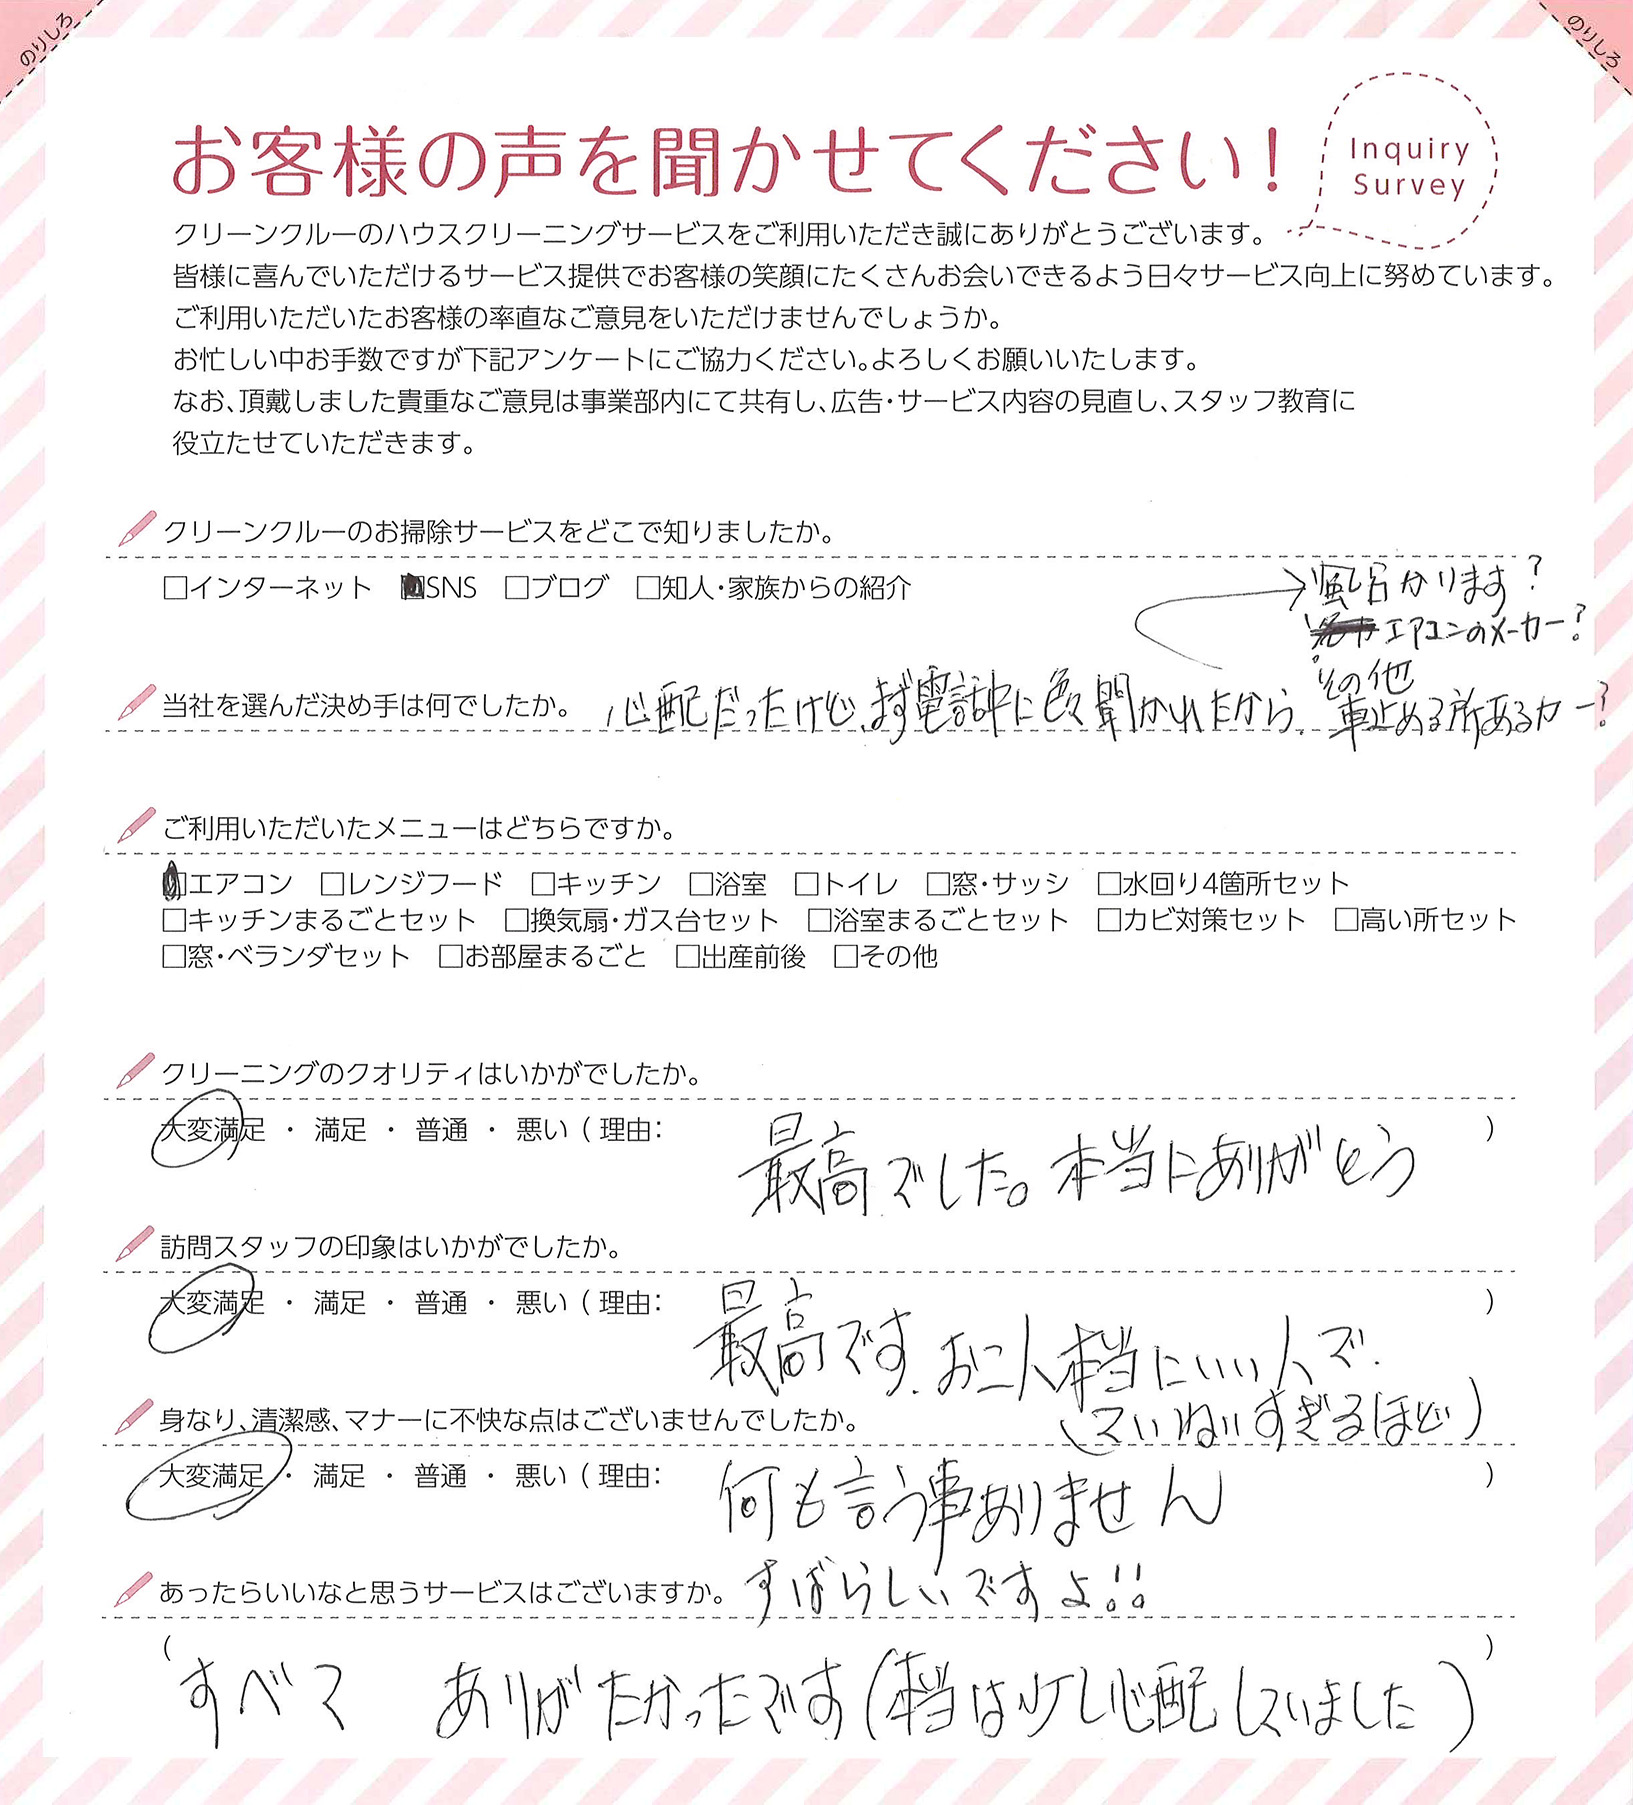 のりしろ
のりしろ
お客様の声を聞かせてください!
Inquiry
Survey
クリーンクルーのハウスクリーニングサービスをご利用いただき誠にありがとうございます。
皆様に喜んでいただけるサービス提供でお客様の笑顔にたくさんお会いできるよう日々サービス向上に努めています。
ご利用いただいたお客様の率直なご意見をいただけませんでしょうか。
お忙しい中お手数ですが下記アンケートにご協力ください。よろしくお願いいたします。
なお、頂戴しました貴重なご意見は事業部内にて共有し、広告・サービス内容の見直し、スタッフ教育に
役立たせていただきます。
クリーンクルーのお掃除サービスをどこで知りましたか。
□インターネット ■SNS □ブログ □知人・家族からの紹介
かります?
エアコンのメーカー?
その他
当社を選んだ決め手は何でしたか。 心配だったけど、まず電話中に色々聞かれたから、車止める所あるかー?
ご利用いただいたメニューはどちらですか。
■エアコン □レンジフード □キッチン □浴室 □トイレ □窓・サッシ □水回り4箇所セット
□キッチンまるごとセット □換気扇・ガス台セット □浴室まるごとセット □カビ対策セット □高い所セット
□窓・ベランダセット □お部屋まるごと □出産前後 □その他
クリーニングのクオリティはいかがでしたか。
大変満足 ・ 満足 ・ 普通 ・ 悪い ( 理由: 最高でした。本当にありがとう )
訪問スタッフの印象はいかがでしたか。
大変満足 ・ 満足 ・ 普通 ・ 悪い ( 理由: 最高です。お二人本当にいい人で )
(ていねいすぎるほど)
身なり、清潔感、マナーに不快な点はございませんでしたか。
大変満足 ・ 満足 ・ 普通 ・ 悪い ( 理由: 何も言う事ありません )
すばらしいですよ!!
あったらいいなと思うサービスはございますか。
( すべて ありがたかったです(本当は少し心配していました) )